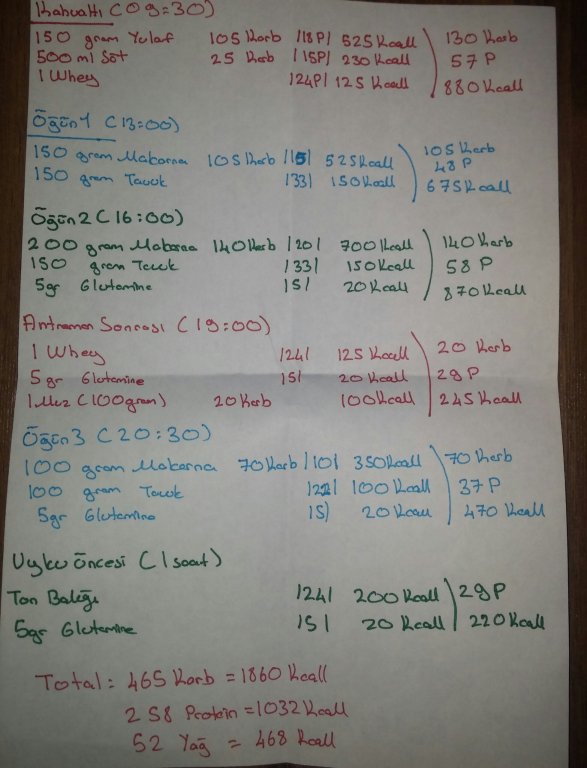 Kahvaltı (09:30)
150 gram Yulaf 105 Karb /18P/ 525 Kcall 130 Karb
500 ml Süt 25 Karb /15P/ 230 Kcall 57 P
1 Whey /24P/ 125 Kcall 880 Kcall
Öğün1 (13:00)
150 gram Makarna 105 Karb /15/ 525 Kcall 105 Karb
150 gram Tavuk /33/ 150 Kcall 48 P
675 Kcall
Öğün2 (16:00)
200 gram Makarna 140 Karb /20/ 700 Kcall 140 Karb
150 gram Tavuk /33/ 150 Kcall 58 P
5gr Glutamine /5/ 20 Kcall 870 Kcall
Antreman Sonrası (19:00)
1 Whey /24/ 125 Kcall 20 Karb
5 gr Glutamine /5/ 20 Kcall 29 P
1 Muz (100gram) 20 Karb 100 Kcall 245 Kcall
Öğün3 (20:30)
100 gram Makarna 70 Karb /10/ 350 Kcall 70 Karb
100 gram Tavuk /22/ 100 Kcall 37 P
5gr Glutamine /5/ 20 Kcall 470 Kcall
Uyku Öncesi (1 saat)
Ton Balığı /24/ 200 Kcall 29 P
5gr Glutamine /5/ 20 Kcall 220 Kcall
Total: 465 Karb = 1860 Kcall
258 Protein = 1032 Kcall
52 Yağ = 468 Kcall